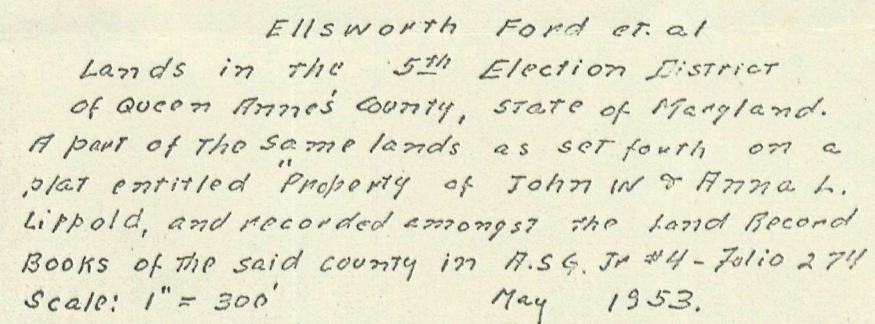 Ellsworth Ford et. al
Lands in the 5th Election District
of Queen Anne's County, State of Maryland.
A part of the same lands as set fourth on a
plat entitled "Property of John W & Anna L.
Lippold, and recorded amongst the Land Record
Books of the said county in A.S.G. Jr #4 - Folio 274
Scale: 1" = 300' May 1953.